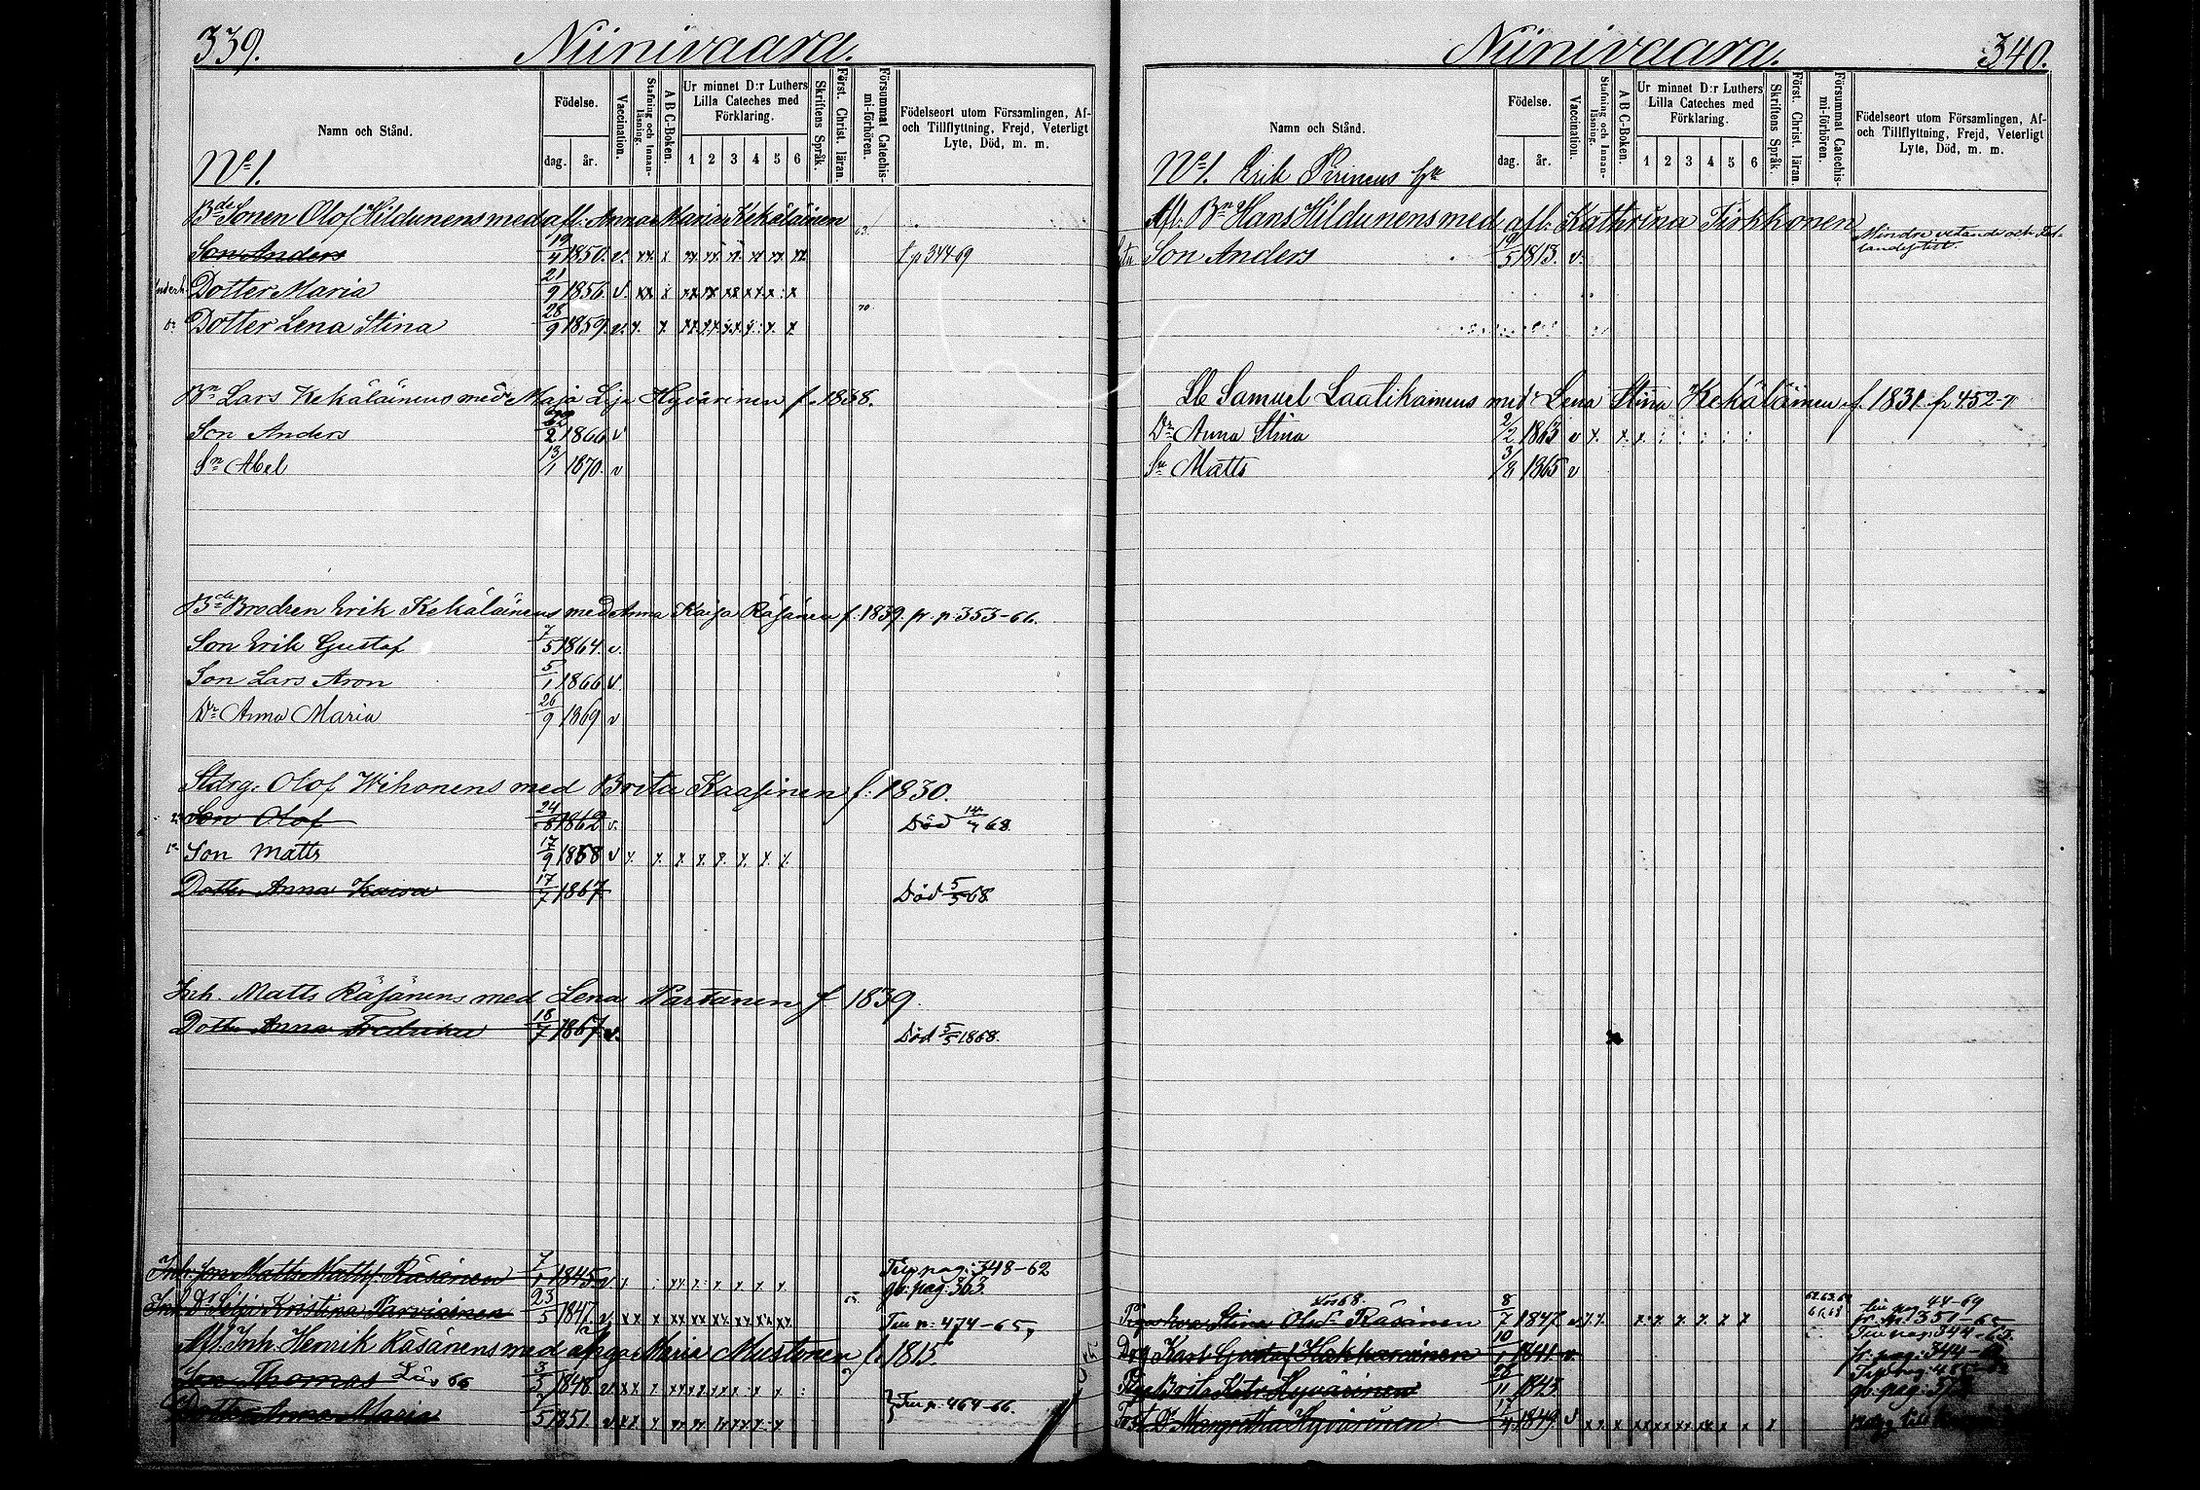 339. Niinivaara.
Namn och Stånd.
Födelse.
dag. år.
Vaccination.
Stafning och Innanläsning.
A B C-Boken.
Ur minnet D:r Luthers Lilla Cateches med Förklaring.
1 2 3 4 5 6
Skriftens Språk.
Först. Christ. läran.
Försummat Catechismi-förhören.
Födelseort utom Församlingen, Af-
och Tillflyttning, Frejd, Veterligt
Lyte, Död, m. m.
No 1.
Bde Sonen Olof Hildunens med afl. Anna Maria Kekäläinen
Son Anders 19/4 1850. v. p 344-69
Dotter Maria 21/9 1856. v.
Dotter Lena Stina 28/9 1859. v.
Bn Lars Kekäläinens med Maja Lisa Hyvärinen f. 1838.
Son Anders 2 1866 v
Sn Abel 13/1 1870. v
Bde Brodren Erik Kekäläinens med Anna Kaisa Räsänen f. 1839. fr. p. 353-66.
Son Erik Gustaf 7/5 1864. v.
Son Lars Aron 5/1 1866 v.
Dr Anna Maria 26/9 1869 v
Stdrg. Olof Wihonens med Brita Kaasinen f. 1830.
Son Olof 24/8 1862 v. Död 68.
Son Matts 17/9 1858 v
Dotter Anna Kaisa 17/7 1867 Död 5/5 68
Inh. Matts Räsänens med Lena Partanen f 1839.
Dotter Anna Fredrika 18/7 1867 v. Död 5/5 1868.
Inh. son Matts Mattss. Räsänen 7/1 1845 v Till pag: 348-62
gb. pag: 363.
Inh. Dr Lisa Kristina Parviainen 23/5 1847 v Till p: 474-65,
Afl. Inh. Henrik Räsänens med Maria Mustonen f. 1815
Son Thomas 3/3 1848 v
Dotter Anna Maria 7/5 1851 v Till p. 464-66.
Niinivaara. 340.
Namn och Stånd.
Födelse.
dag. år.
Vaccination.
Stafning och Innanläsning.
A B C-Boken.
Ur minnet D:r Luthers Lilla Cateches med Förklaring.
1 2 3 4 5 6
Skriftens Språk.
Först. Christ. läran.
Försummat Catechismi-förhören.
Födelseort utom Församlingen, Af-
och Tillflyttning, Frejd, Veterligt
Lyte, Död, m. m.
No 1. Erik Pirinens
Afl. Bn Hans Hildunens med afl. Kathrina Tirkkonen
Son Anders 19/5 1813. v. Mindre vetande och
Samuel Laatikainens med Lena Stina Kekäläinen f. 1831. fr 452-
Dr Anna Stina 2/2 1863 v
Sn Matts 3/8 1865 v
Stina Olofsdr Räsänen 8/7 1847 v till pag 44-69
fr. p: 351-
Till pag: 344-
Drg Karl Gustaf Hakkarainen 10/1 1844 v. fr. pag: 344-
Brita Hyvärinen 11 1843 gb. pag:
Dr Margretha Hyvärinen 17/4 1849 v